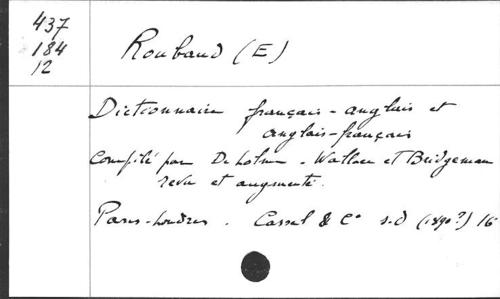 437
184
12
Roubaud (E)
Dictionnaire français-anglais et
anglais-français
Compilé par De Lolme - Wallace et Bridgeman
revu et augmenté.
Paris-Londres. Cassel & Co s.d (1890?) 16